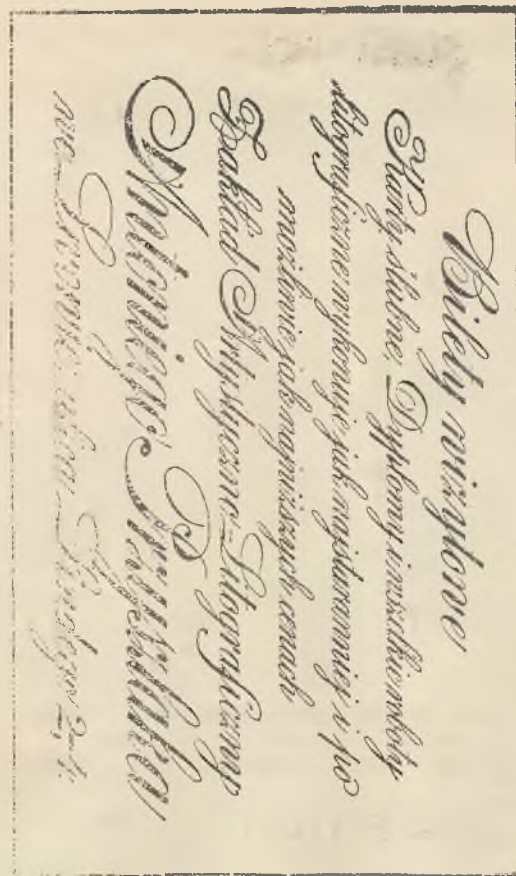 Bilety wizytowe
Karty ślubne, Dyplomy i wszelkie roboty
litograficzne wykonuje jak najstaranniej i po
możliwie jak najniższych cenach
Zakład Artystyczno-Litograficzny
Antoniego Przyszlaka
we Lwowie ulica Lindego